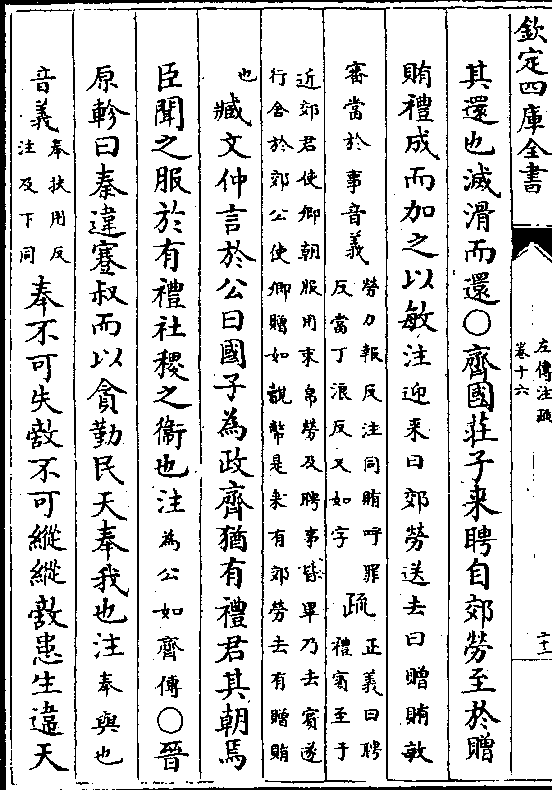 欽定四庫全書
左傳注疏
卷十六
二十二
其還也滅滑而還○齊國莊子來聘自郊勞至於贈
賄禮成而加之以敏注迎来曰郊勞送去曰贈賄敏
審當於事音義
勞力報反注同賄呼罪
反當丁浪反又如字
疏
正義曰聘
禮賓至于
近郊君使卿朝服用束帛勞及聘事皆畢乃去賓遂
行舍於郊公使卿贈如覿幣是来有郊勞去有贈賄
也
臧文仲言於公曰國子為政齊猶有禮君其朝焉
臣聞之服於有禮社稷之衞也注為公如齊傳○晉
原軫曰秦違蹇叔而以貪勤民天奉我也注奉與也
音義
奉扶用反
注及下同
奉不可失敵不可縱縱敵患生違天